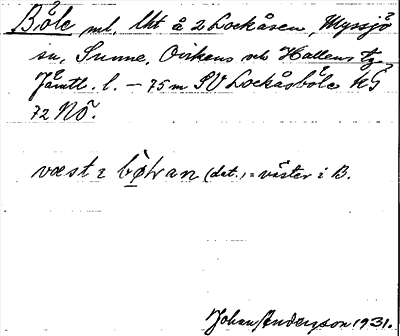 Böle ml. Uht å 2 Lockåsen, Myssjö
sn, Sunne, Ovikens och Hallens tg,
Jämtl. l. – 75 m SV Lockåsböle KG
72 NÖ.
væst i bø̀ɫran (dat.) = väster i B.
Johan Anderzson 1931.